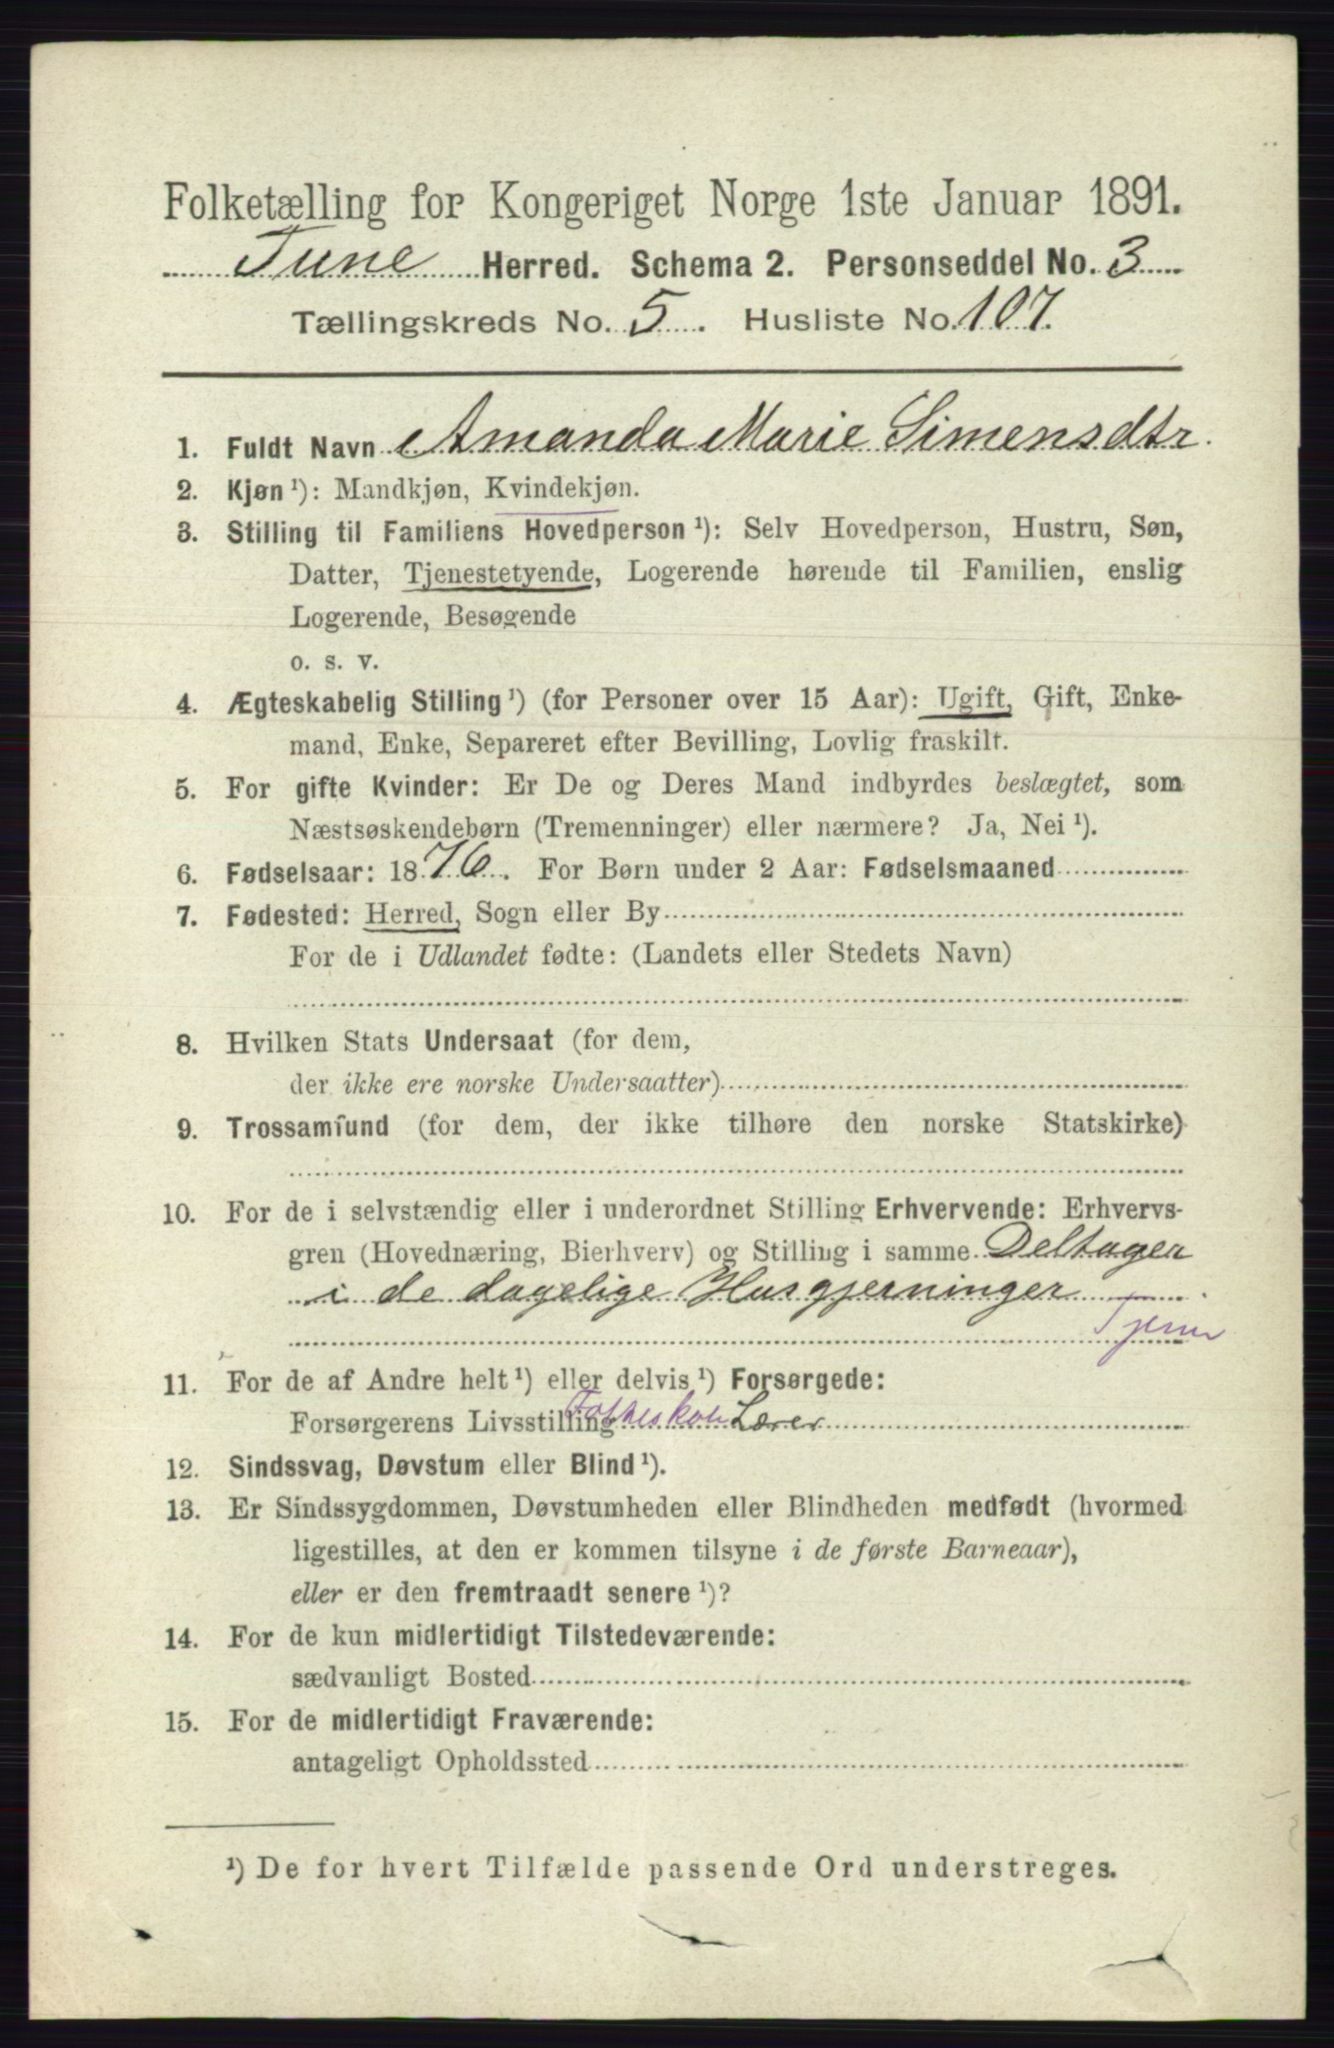 Folketælling for Kongeriget Norge 1ste Januar 1891.
Tune Herred. Schema 2. Personseddel No. 3
Tællingskreds No. 5. Husliste No. 107.
1. Fuldt Navn Amanda Marie Simensdtr.
2. Kjøn ¹): Mandkjøn, Kvindekjøn.
3. Stilling til Familiens Hovedperson ¹): Selv Hovedperson, Hustru, Søn,
Datter, Tjenestetyende, Logerende hørende til Familien, enslig
Logerende, Besøgende
o. s. v.
4. Ægteskabelig Stilling ¹) (for Personer over 15 Aar): Ugift, Gift, Enke-
mand, Enke, Separeret efter Bevilling, Lovlig fraskilt.
5. For gifte Kvinder: Er De og Deres Mand indbyrdes beslægtet, som
Næstsøskendebørn (Tremenninger) eller nærmere? Ja, Nei ¹).
6. Fødselsaar: 1876. For Børn under 2 Aar: Fødselsmaaned
7. Fødested: Herred, Sogn eller By
For de i Udlandet fødte: (Landets eller Stedets Navn)
8. Hvilken Stats Undersaat (for dem,
der ikke ere norske Undersaatter)
9. Trossamfund (for dem, der ikke tilhøre den norske Statskirke)
10. For de i selvstændig eller i underordnet Stilling Erhvervende: Erhvervs-
gren (Hovednæring, Bierhverv) og Stilling i samme Deltager
i de dagelige Husgjerninger
11. For de af Andre helt ¹) eller delvis ¹) Forsørgede:
Forsørgerens Livsstilling Folkeskole Lærer
12. Sindssvag, Døvstum eller Blind ¹).
13. Er Sindssygdommen, Døvstumheden eller Blindheden medfødt (hvormed
ligestilles, at den er kommen tilsyne i de første Barneaar),
eller er den fremtraadt senere ¹)?
14. For de kun midlertidigt Tilstedeværende:
sædvanligt Bosted
15. For de midlertidigt Fraværende:
antageligt Opholdssted
¹) De for hvert Tilfælde passende Ord understreges.